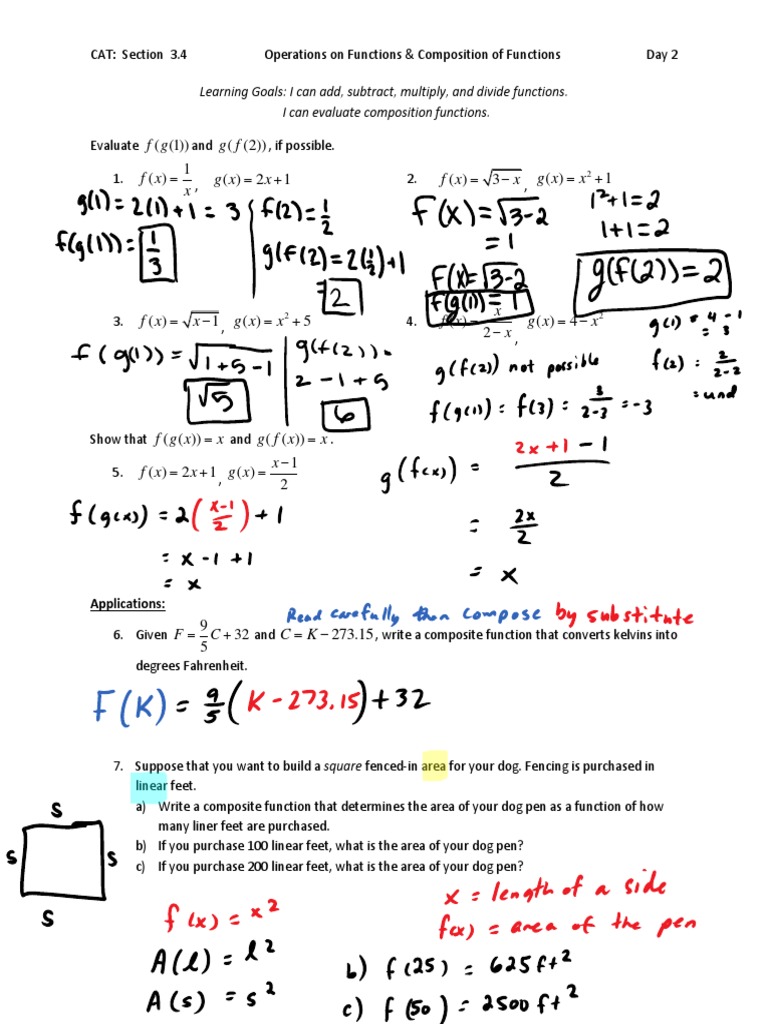 CAT: Section 3.4 Operations on Functions & Composition of Functions Day 2
Learning Goals: I can add, subtract, multiply, and divide functions.
I can evaluate composition functions.
Evaluate f(g(1)) and g(f(2)), if possible.
1. f(x) = 1/x, g(x) = 2x+1
g(1) = 2(1)+1 = 3
f(g(1)) = 1/3
f(2) = 1/2
g(f(2) = 2(1/2)+1
= 2
2. f(x) = √(3−x), g(x) = x²+1
f(x) = √(3-2)
= 1
F(x) = √(3-2)
f(g(1)) = 1
1²+1 = 2
1+1 = 2
g(f(2)) = 2
3. f(x) = √(x−1), g(x) = x²+5
f(g(1)) = √(1+5-1)
√5
g(f(2)) =
2-1+5
6
4. f(x) = x/(2−x), g(x) = 4−x²
g(1) = 4-1
= 3
g(f(2)) not possible
f(2) = 2/(2-2)
= und
f(g(1)) = f(3) = 3/(2-3) = -3
Show that f(g(x)) = x and g(f(x)) = x.
5. f(x) = 2x+1, g(x) = (x−1)/2
f(g(x)) = 2((x-1)/2) + 1
= x-1+1
= x
g(f(x)) = (2x+1-1)/2
= 2x/2
= x
Applications:
Read carefully then compose by substitute
6. Given F = 9/5 C+32 and C = K−273.15, write a composite function that converts kelvins into
degrees Fahrenheit.
F(K) = 9/5(K-273.15)+32
7. Suppose that you want to build a square fenced-in area for your dog. Fencing is purchased in
linear feet.
a) Write a composite function that determines the area of your dog pen as a function of how
many liner feet are purchased.
b) If you purchase 100 linear feet, what is the area of your dog pen?
c) If you purchase 200 linear feet, what is the area of your dog pen?
s
s s
s
x = length of a side
f(x) = area of the pen
f(x) = x²
A(l) = l²
A(s) = s²
b) f(25) = 625ft²
c) f(50) = 2500ft²